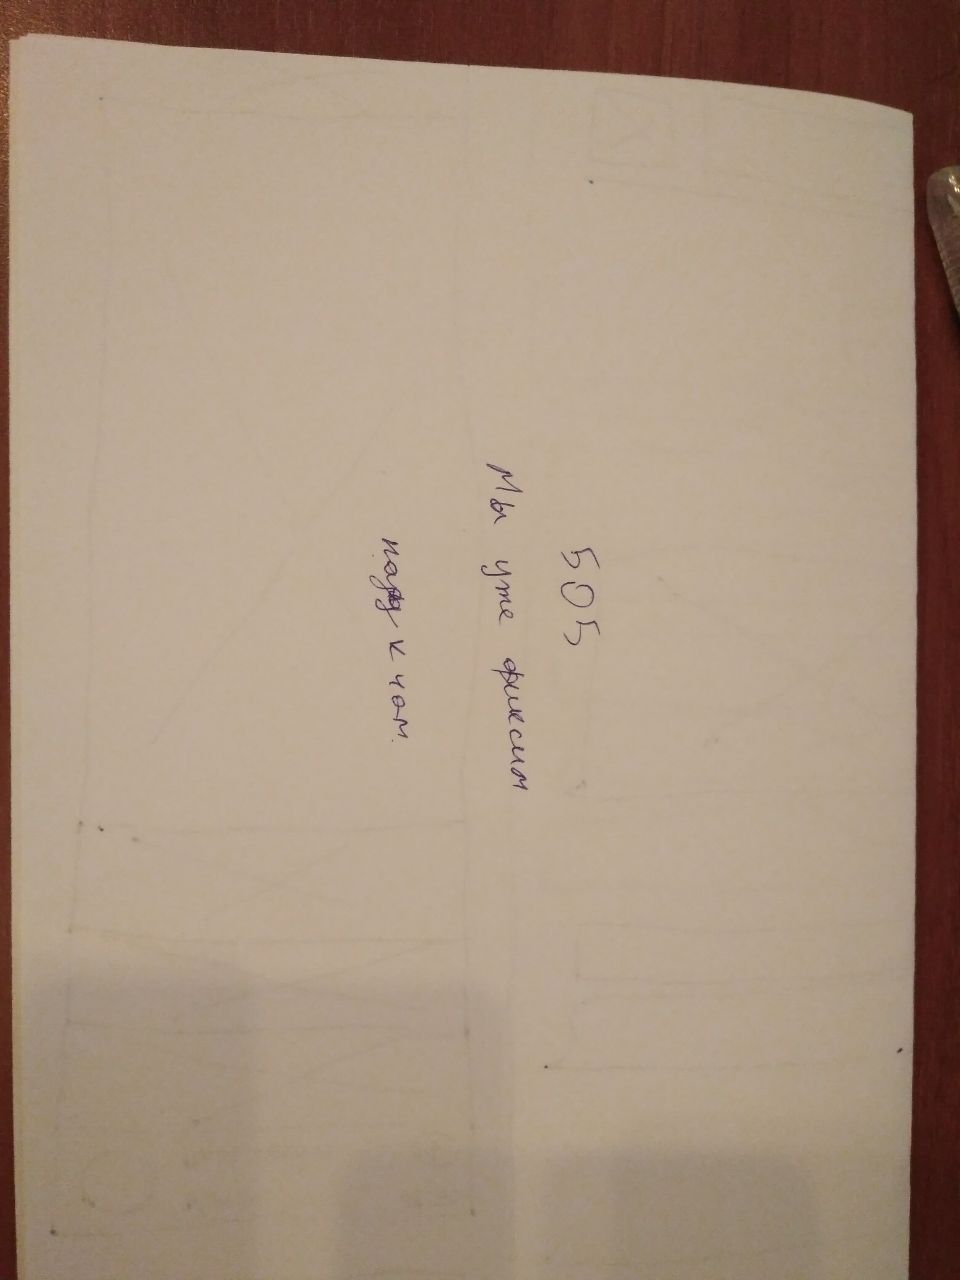 505
Мы уже фиксим
к чом.